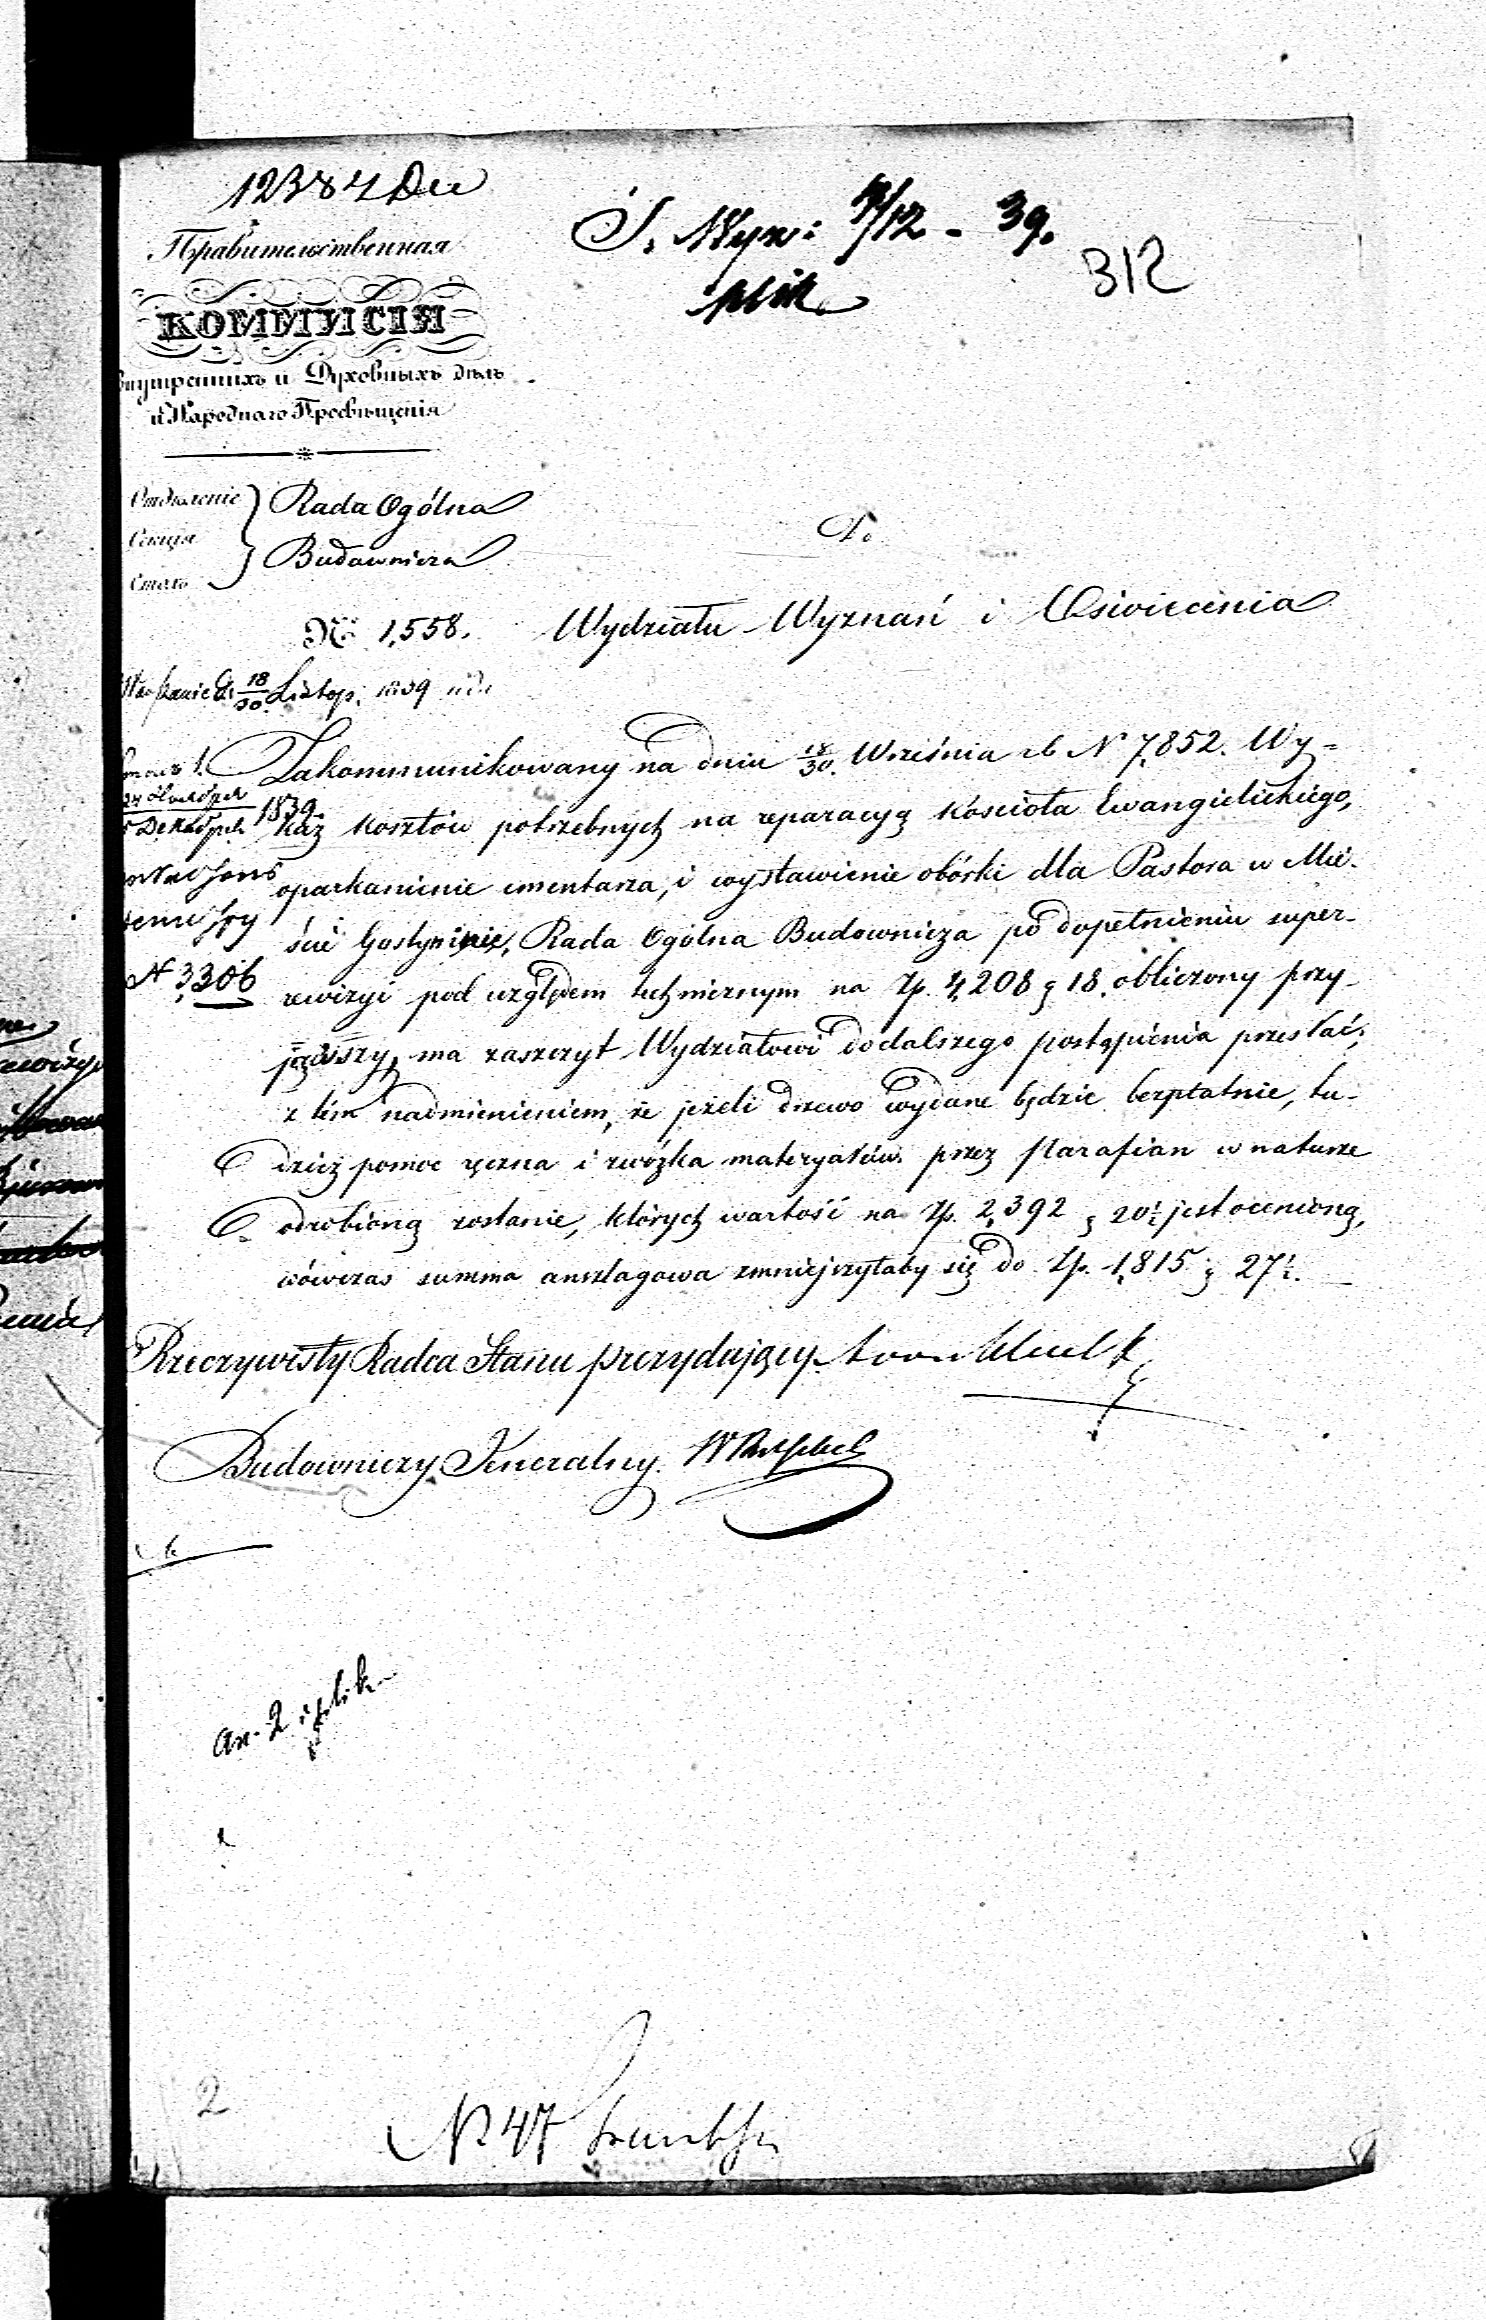 12384 Du
S. Wyzn: 7/12 - 39.
312
plik
Правительственная
КОММИСІЯ
Внутреннихъ и Духовныхъ дѣлъ
и Народнаго Просвѣщенія
Отдѣленіе
Секція
Столъ
Rada Ogólna
Budownicza
Do
№ 1,558.
Wydziału Wyznań i Oświecenia
18/30 Listop. 1839
Zakommunikowany na dniu 18/30. Września rb N 7,852. Wy-
kaz kosztów potrzebnych na reparacyą Kościoła Ewangielickiego,
oparkanienie cmentarza, i wystawienie obórki dla Pastora w Mie-
ście Gostyninie, Rada Ogólna Budownicza po dopełnieniu super-
rewizyi pod względem technicznym na Zp. 4,208 g 18. obliczony przy-
jąwszy, ma zaszczyt Wydziałowi do dalszego postąpienia przesłać,
z tém nadmienieniem, że jeżeli drzewo wydane będzie bezpłatnie, tu-
dzież pomoc ręczna i zwózka materyałów przez Parafian w naturze
odrobioną zostanie, których wartość na Zp. 2,392 g 20½ jest ocenioną,
wówczas summa anszlagowa zmniejszyłaby się do Zp. 1,815 g 27½.
1839
N 3,306
Rzeczywisty Radca Stanu prezydujący
Budowniczy Jeneralny.
an. 2 i plik
2
№ 47